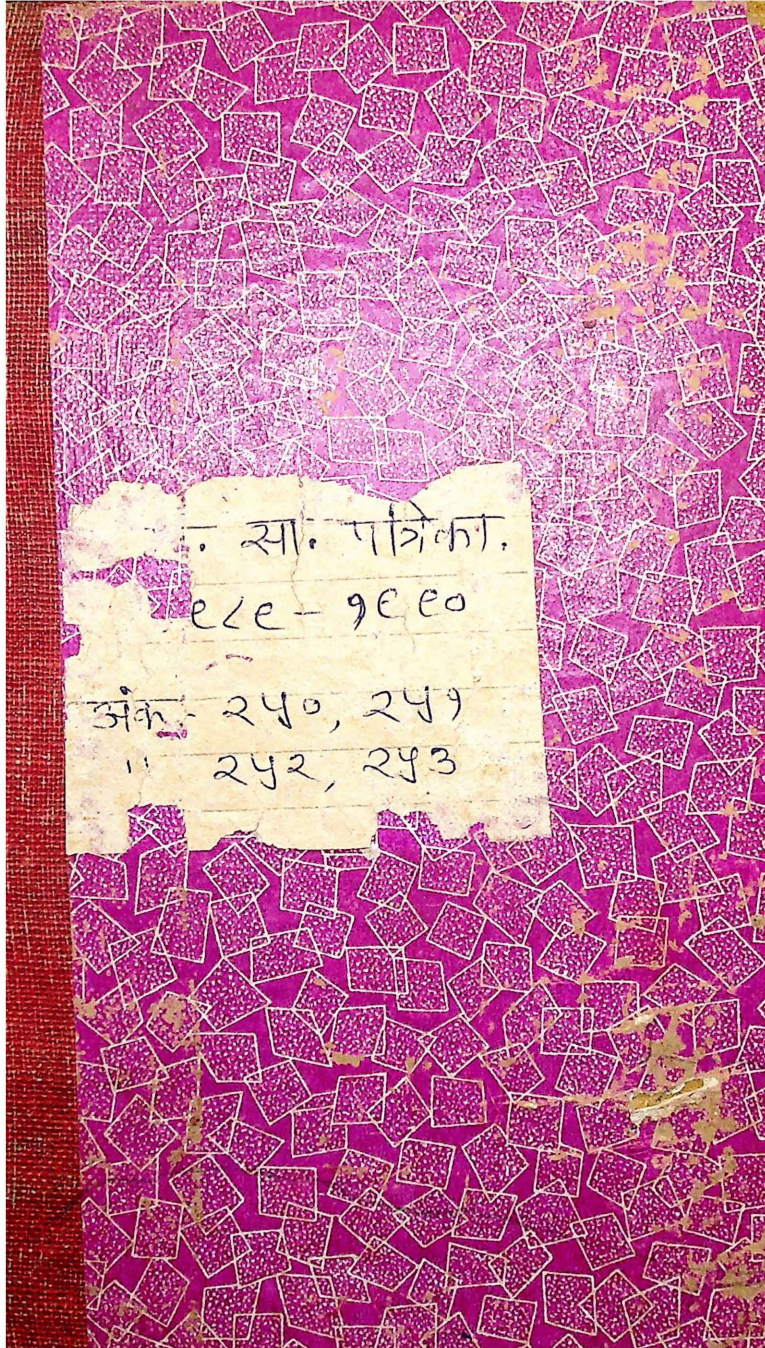 . सा. पत्रिका.
९८९ - १९९०
अंक - २५०, २५१
" २५२, २५३